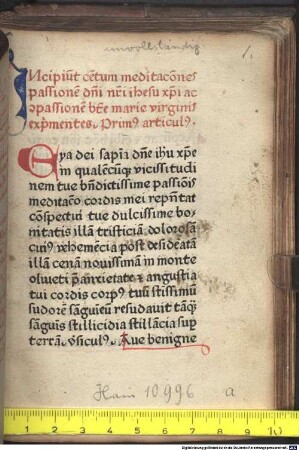 unvollständig 1.
INcipiūt cētum meditacōnes
passionē dn̄i nr̄i ihesu xp̄i ac
cōpassionē bt̄e marie virginis
exp̄mentes. Primꝰ articulꝰ.
Eya dei sapīa dn̄e ihū xp̄e
in qualēcūqꝫ vicissitudi
nem tue bn̄dictissime passiōis
meditacō cordis mei rep̄ntat
cōspectui tue dulcissime bo-
nitatis illā tristiciā dolorosā
cuiꝰ vehemēcia post desideatā
illā cenā nouissimā in monte
oliueti p̄ anxietate ⁊ angustia
tui cordis corpꝰ tuū st̄issimū
sudorē sāguieū resudauit tāqꝫ
sāguīs stillicidia stillācia sup̄
terrā. v̄siculꝰ. Aue benigne
Hain 10996 a
0 1 2 3 4 5 6 7 8 9 10